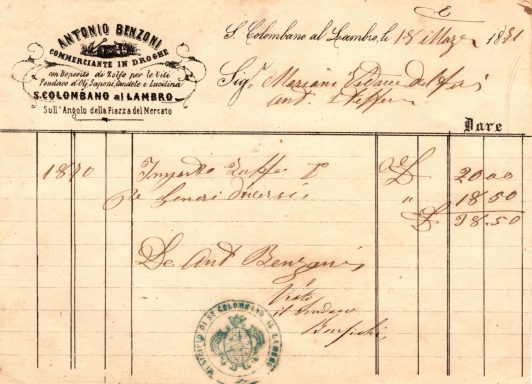 ANTONIO BENZONI
COMMERCIANTE IN DROGHE
con Deposito di Zolfo per le Viti
Fondaco d'Olj Saponi, Candele e Lucilina
S. COLOMBANO al LAMBRO
Sull'Angolo della Piazza del Mercato
S. Colombano al Lambro, li 18 Marzo 1871
Sigr. Mariani
Dare
1870 Importo Zolfo £ 20.00
Generi diversi " 18.50
£ 38.50
De Ant Benzoni
Visto
il Sindaco
MUNICIPIO DI ST COLOMBANO AL LAMBRO